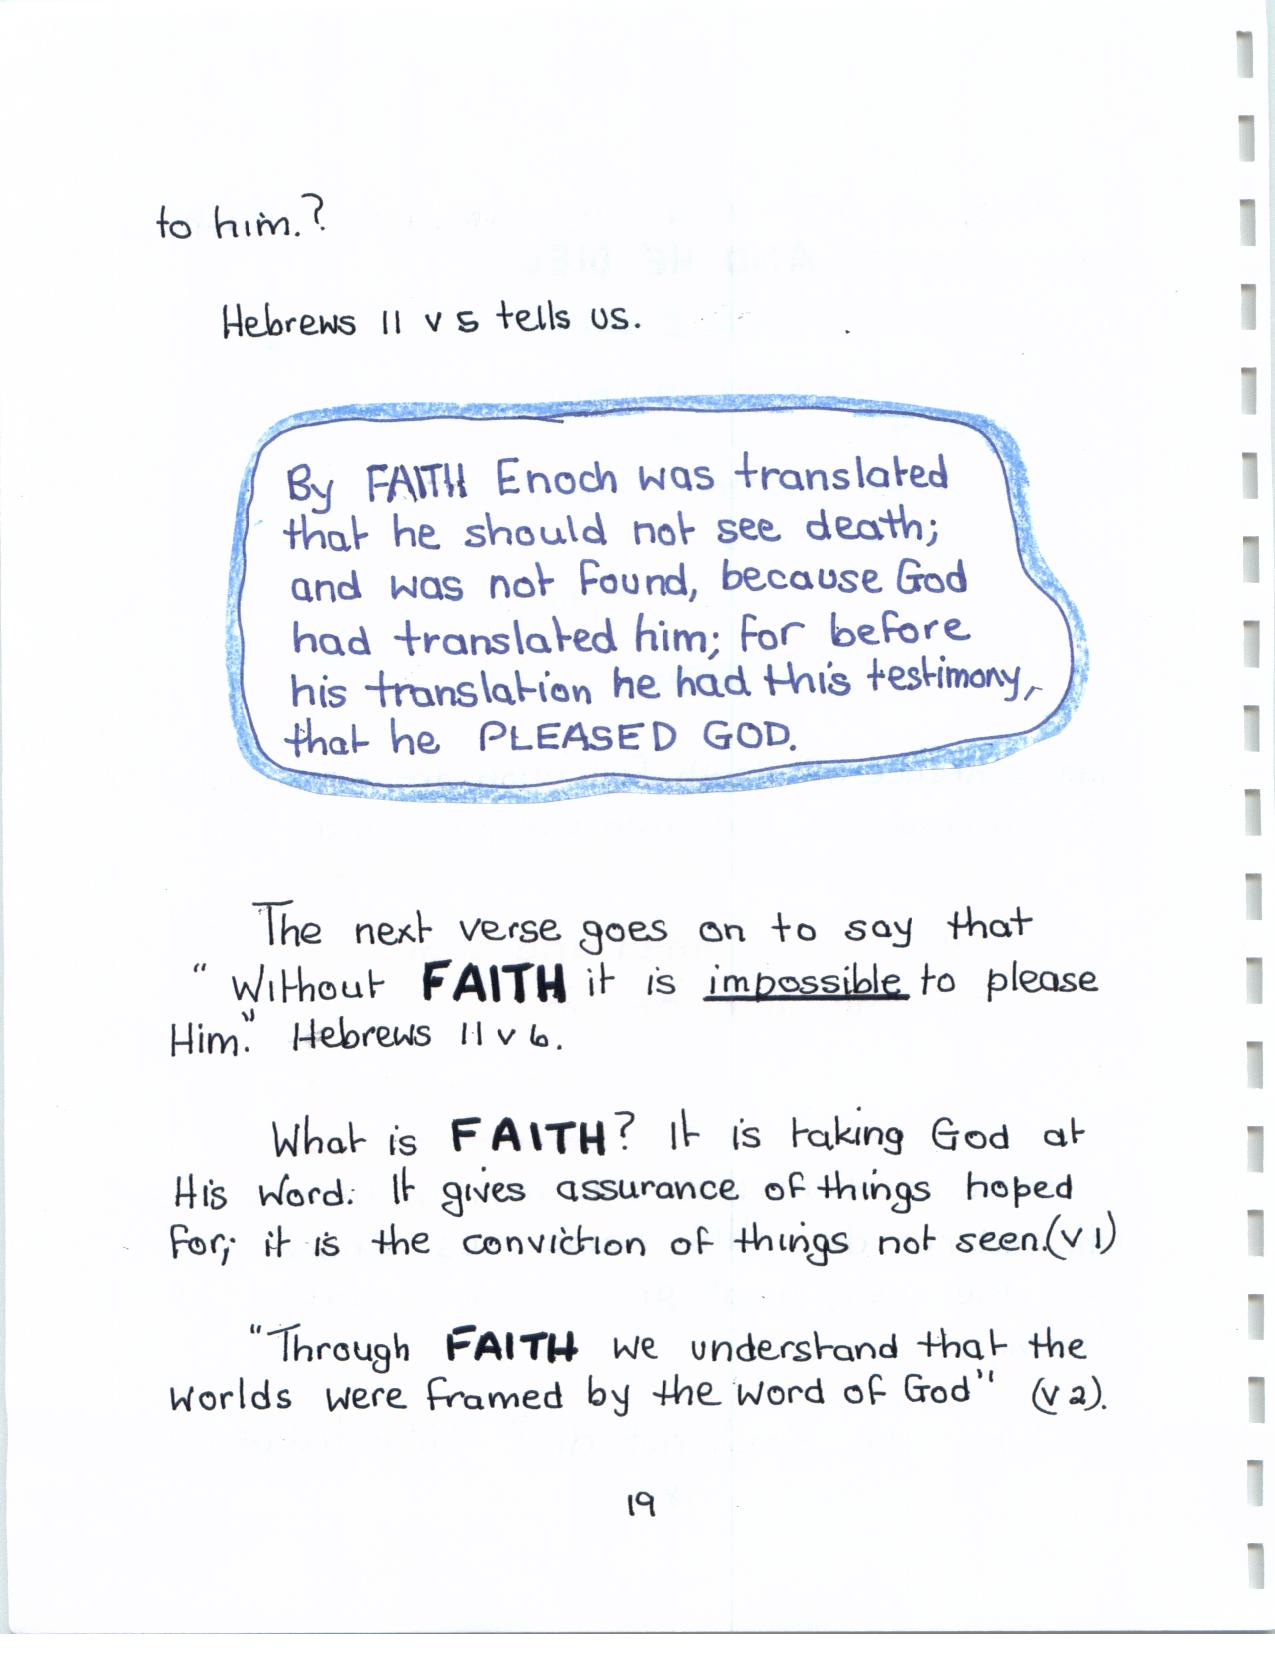 to him.?
Hebrews 11 v 5 tells us.
By FAITH Enoch was translated
that he should not see death;
and was not found, because God
had translated him; for before
his translation he had this testimony,
that he PLEASED GOD.
The next verse goes on to say that
"Without FAITH it is impossible to please
Him." Hebrews 11 v 6.
What is FAITH? It is taking God at
His Word. It gives assurance of things hoped
for; it is the conviction of things not seen.(v 1)
"Through FAITH we understand that the
worlds were framed by the word of God" (v 2).
19